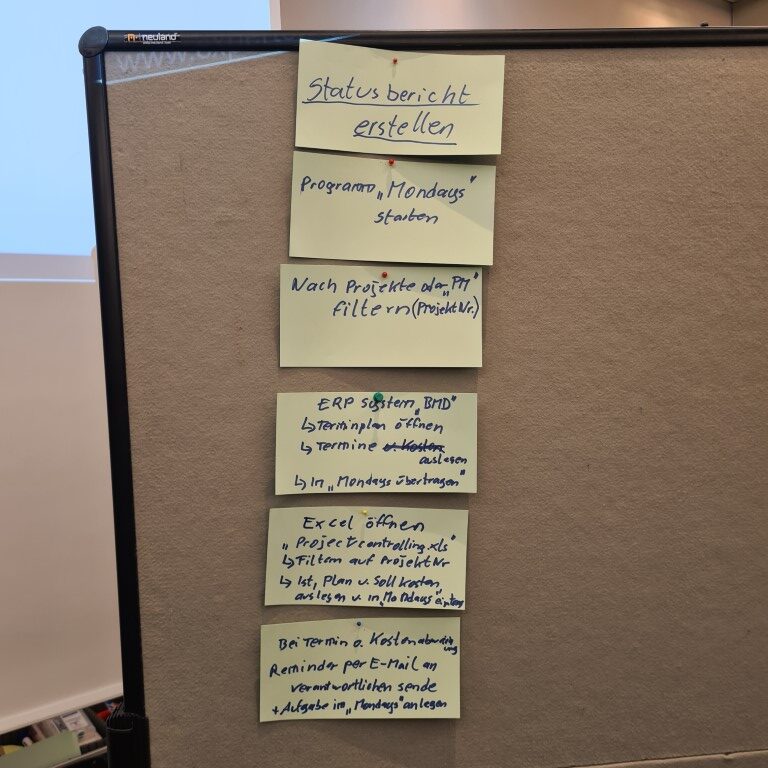 neuland
Statusbericht
erstellen
Programm „Mondays"
starten
Nach Projekte oder „PM"
filtern (Projekt Nr.)
ERP System „BMD"
↳ Terminplan öffnen
↳ Termine u. Kosten
auslesen
↳ In „Mondays übertragen"
Excel öffnen
„Projectcontrolling.xls"
↳ Filtern auf Projekt Nr
↳ Ist, Plan u. Soll Kosten
auslesen u. in „Mondays"
Bei Termin o. Kostenabweichung
Reminder per E-Mail an
verantwortlichen sende
+ Aufgabe im „Mondays" anlegen